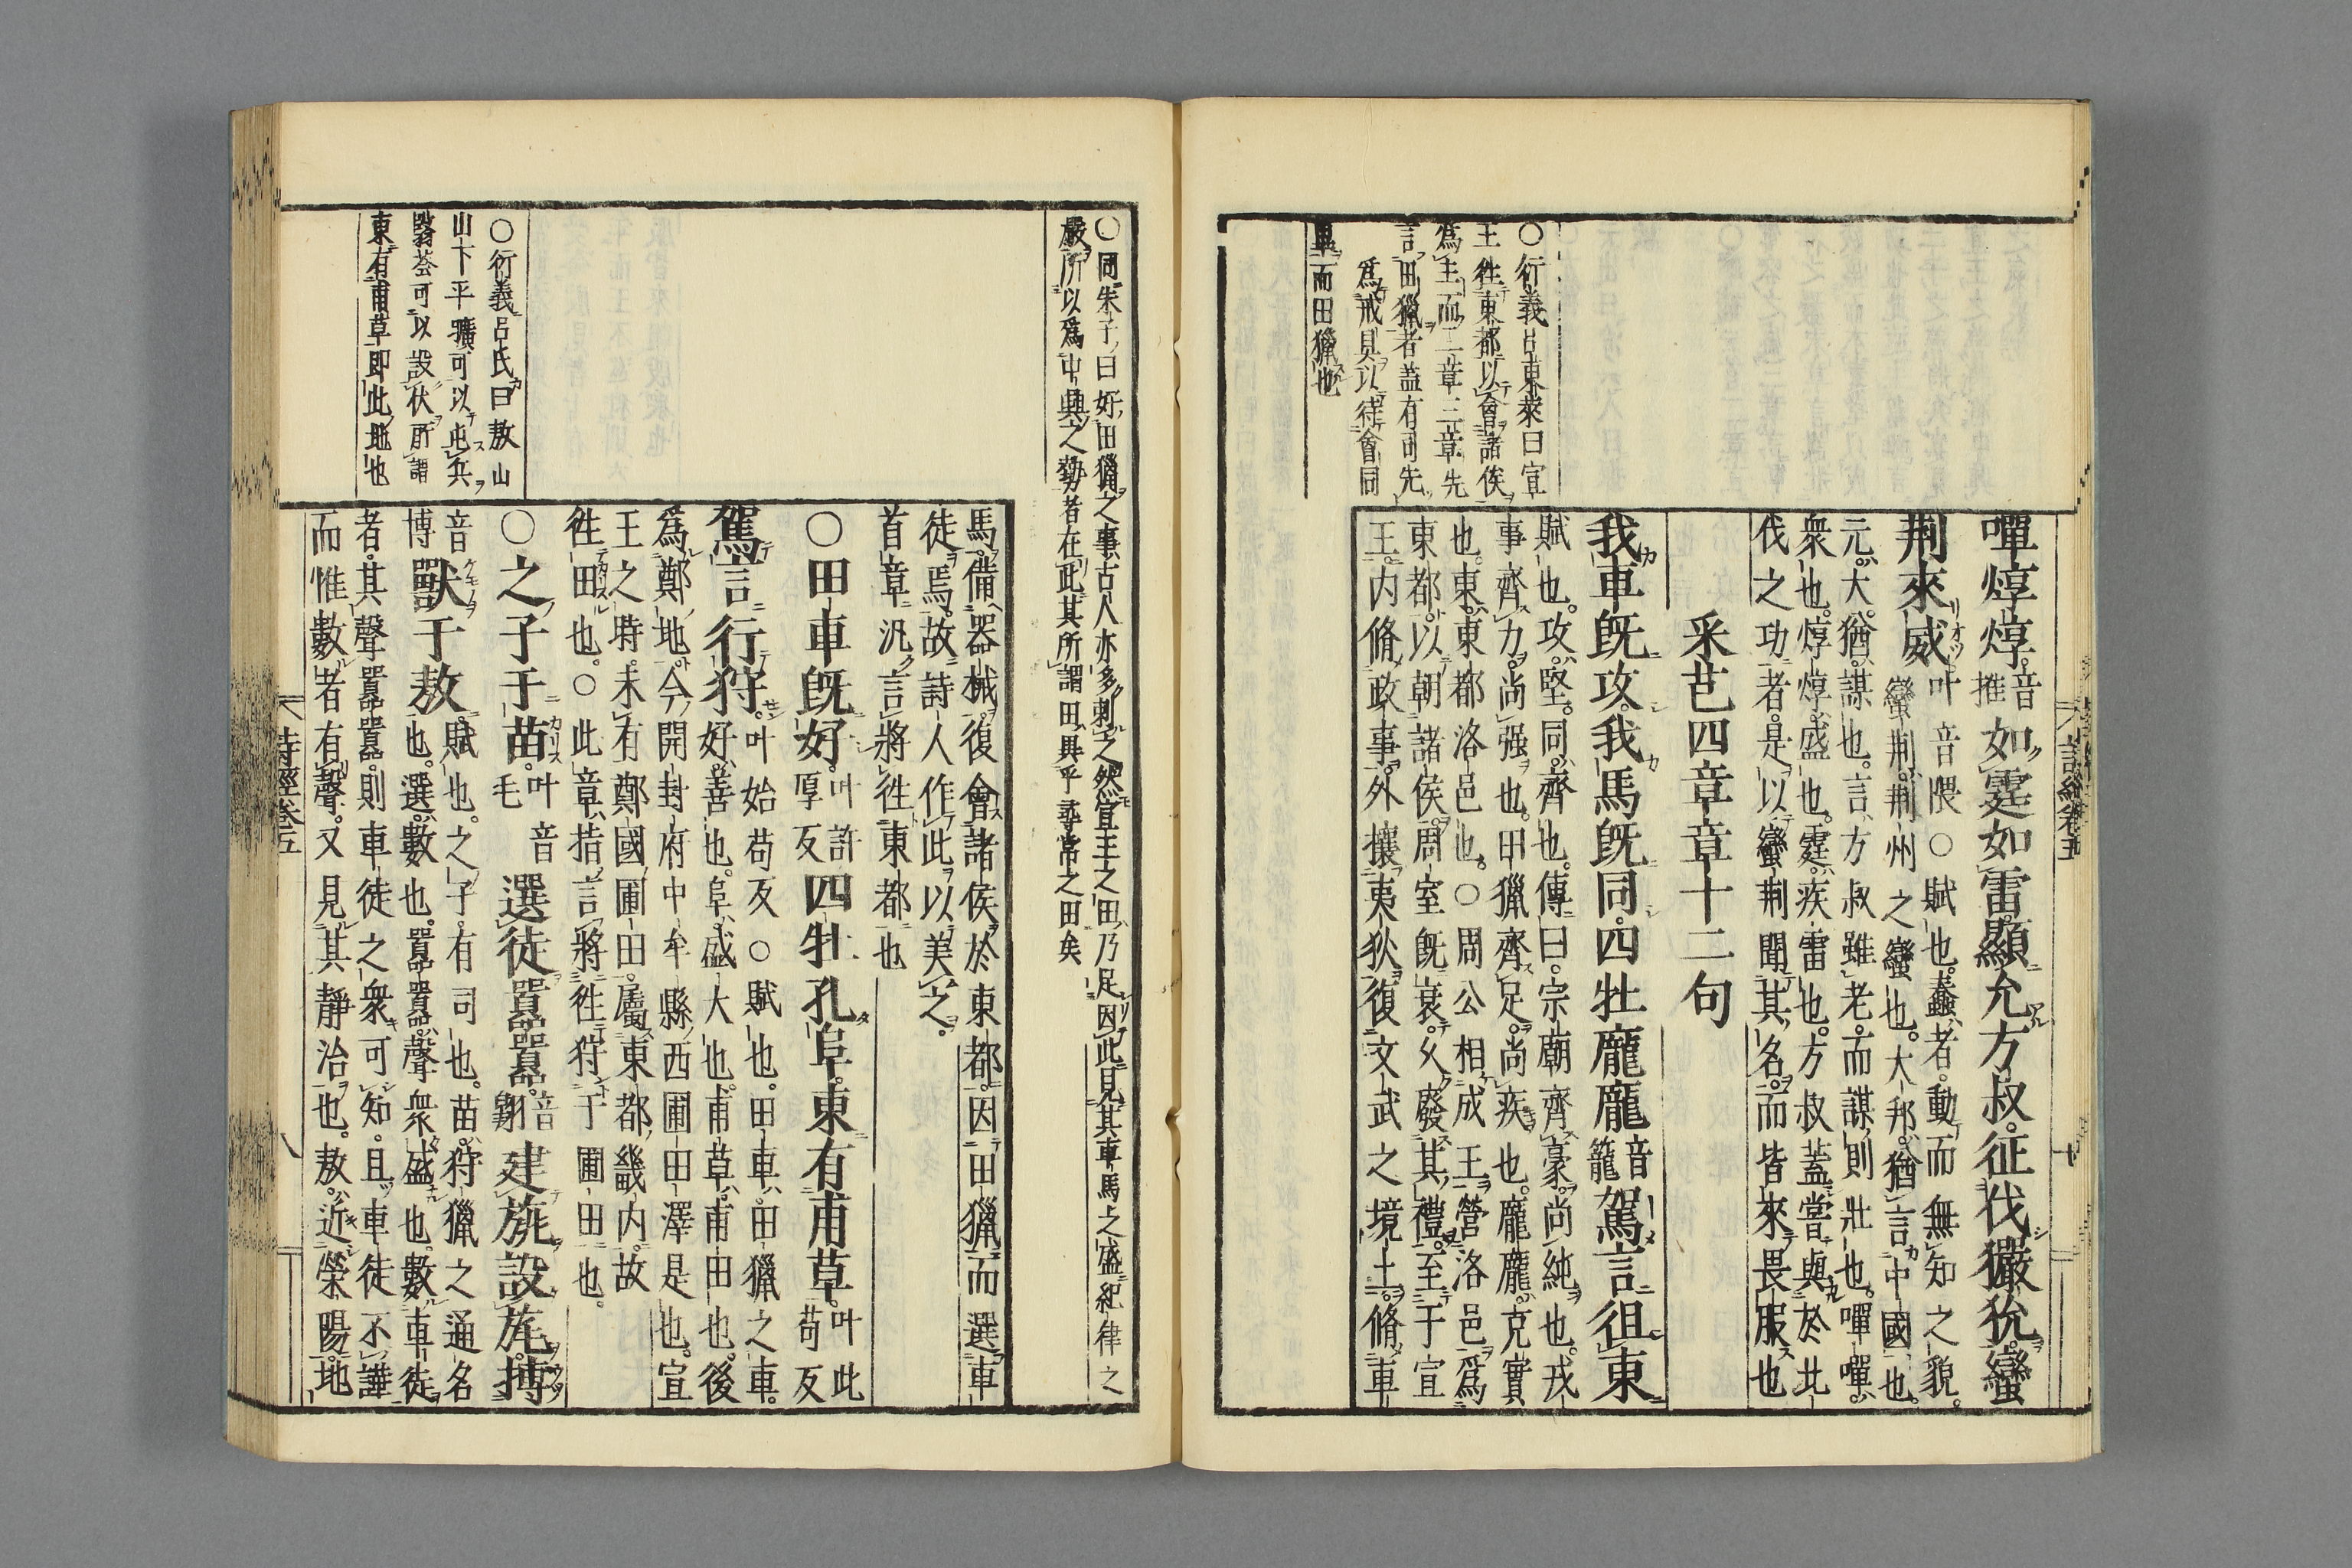 嘽焞焞音推如霆如雷。顯允方叔。征伐玁狁。蠻
荆來威叶音隈○賦也。蠢者。動而無知之貌。
蠻荆。荆州之蠻也。大邦。猶言中國也。
元。大。猶。謀也。言方叔雖老。而謀則壯也。嘽嘽。
衆也。焞焞。盛也。霆。疾雷也。方叔蓋嘗與於北
伐之功者。是以蠻荆聞其名。而皆來畏服也
采芑四章章十二句
我車旣攻。我馬旣同。四牡龐龐音籠駕言徂東
賦也。攻。堅。同。齊也。傳曰。宗廟齊豪。尚純也。戎
事齊力。尚强也。田獵齊足。尚疾也。龐龐。充實
也。東。東都洛邑也。○周公相成王。營洛邑。爲
東都。以朝諸侯。周室旣衰。久廢其禮。至于宣
王。内脩政事。外攘夷狄。復文武之境土。脩車
○衍義呂東萊曰宣
王徃東都以會諸侯
爲主而二章三章先
言田獵者蓋有司先
爲戒具以待會同
畢而田獵也
詩經卷五
十
○同朱子曰好田獵之事古人亦多刺之然宣王之田乃足因此見其車馬之盛紀律之
嚴所以爲中興之勢者在此其所謂田異乎尋常之田矣
馬。備器械。復會諸侯於東都。因田獵而選車
徒焉。故詩人作此以美之。
首章汎言將徃東都也
○田車旣好。叶許厚反四牡孔阜。東有甫草。叶此苟反
駕言行狩。叶始苟反○賦也。田車。田獵之車。
好。善也。阜。盛大也。甫草。甫田也。後
爲鄭地。今開封府中牟縣西圃田澤是也。宣
王之時。未有鄭國圃田。屬東都畿内。故
徃田也。○此章指言將徃狩于圃田也。
○之子于苗。叶音毛選徒囂囂。音翺建旐設旄。搏
音博獸于敖。賦也。之子。有司也。苗。狩獵之通名
也。選。數也。囂囂。聲衆盛也。數車徒
者。其聲囂囂。則車徒之衆可知。且車徒不譁
而惟數者有聲。又見其靜治也。敖。近滎陽。地
○衍義呂氏曰敖山
山下平曠可以屯兵
翳薈可以設伏所謂
東有甫草即此地也
詩經卷五